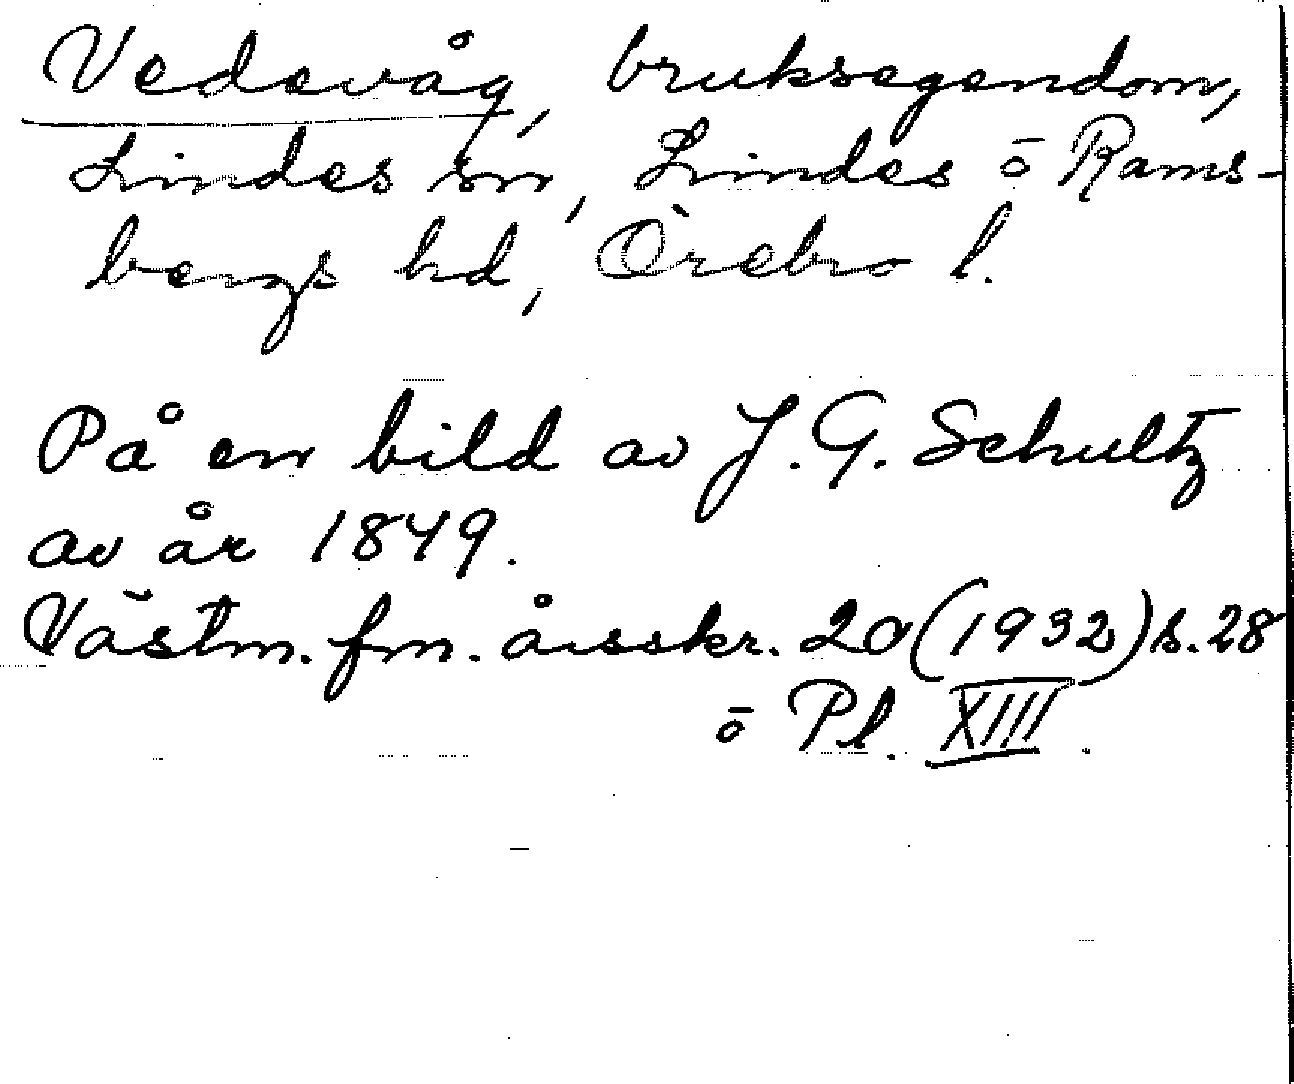 Vedevåg, bruksegendom,
Lindes sn, Lindes ō Rams-
bergs hd, Örebro l.
På en bild av J. G. Schultz
av år 1849.
Västm. fm. årsskr. 20 (1932) s. 28
ō Pl. XIII.